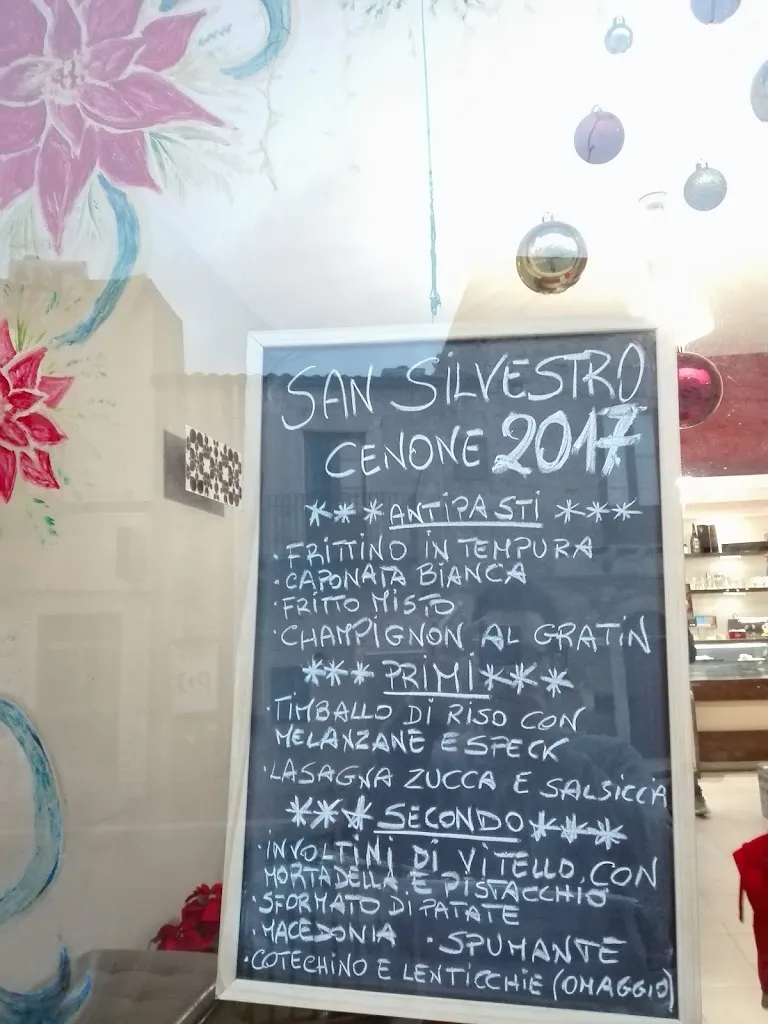 SAN SILVESTRO
CENONE 2017
*** ANTIPASTI ***
· FRITTINO IN TEMPURA
· CAPONATA BIANCA
· FRITTO MISTO
· CHAMPIGNON AL GRATIN
*** PRIMI ***
· TIMBALLO DI RISO CON
MELANZANE E SPECK
· LASAGNA ZUCCA E SALSICCIA
*** SECONDO ***
· INVOLTINI DI VITELLO CON
MORTADELLA E PISTACCHIO
· SFORMATO DI PATATE
· MACEDONIA · SPUMANTE
· COTECHINO E LENTICCHIE (OMAGGIO)